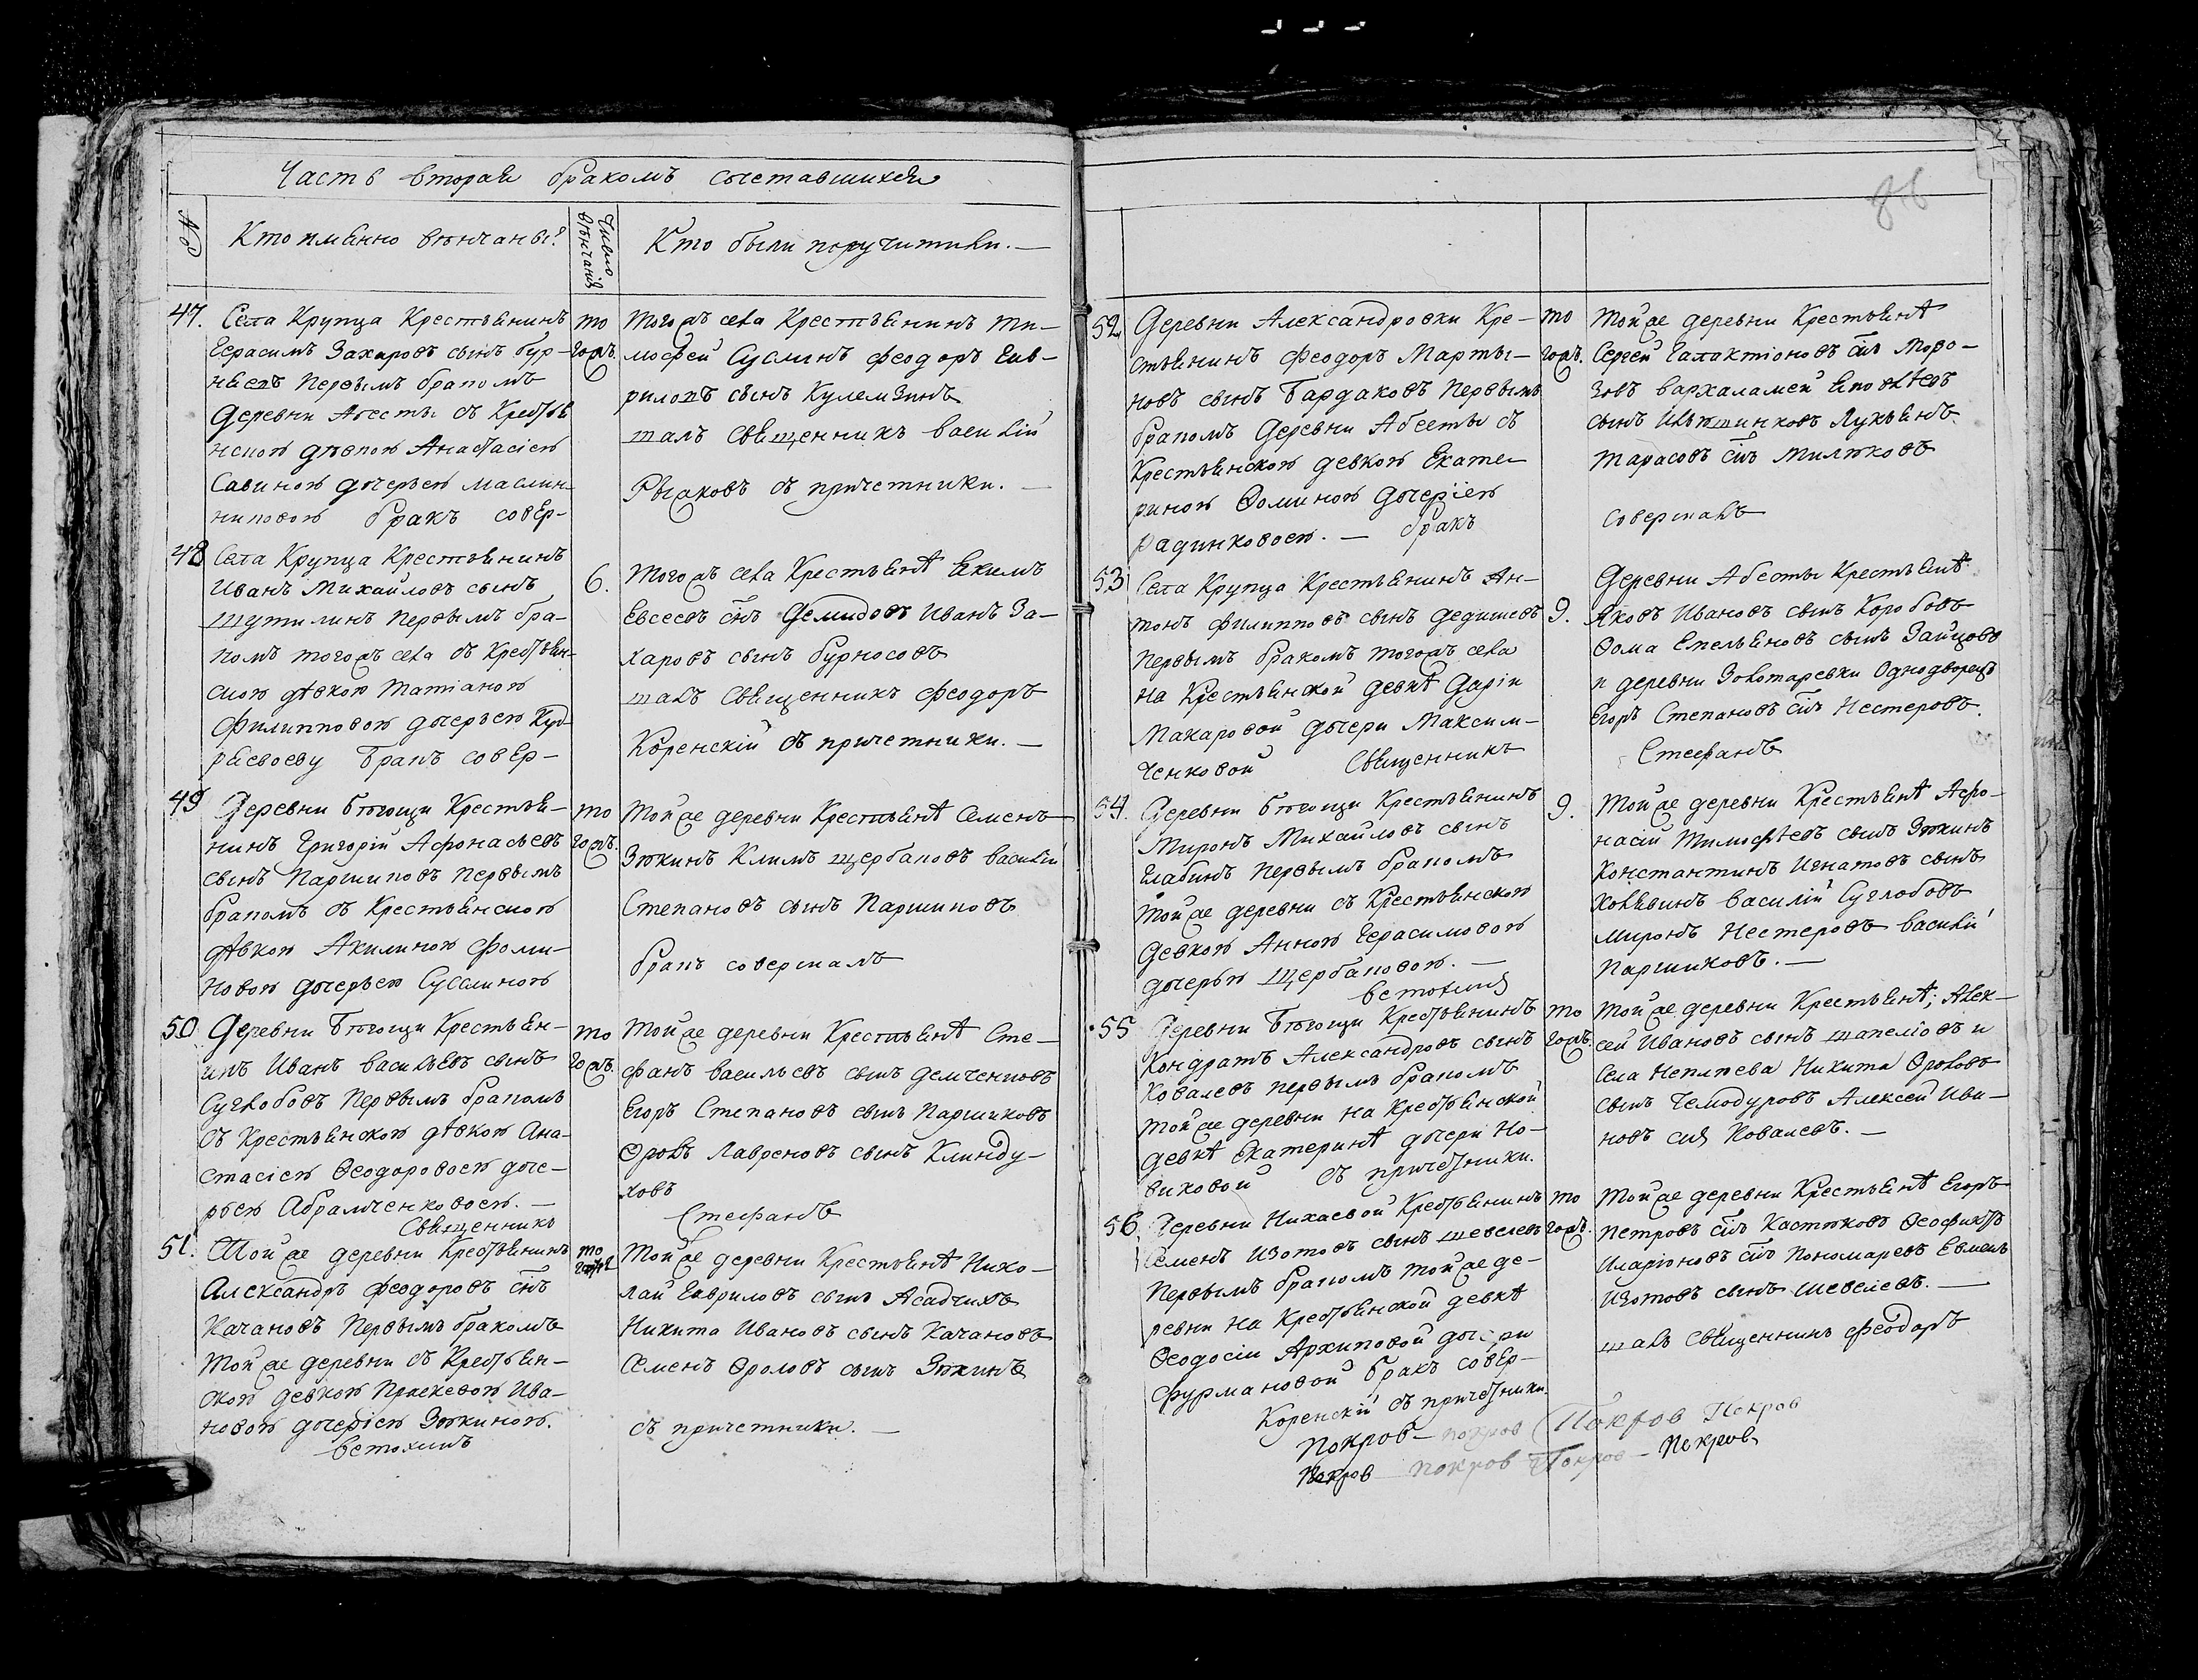 Часть вторая бракомъ сочетавшихся
№
Кто имянно вѣнчаны?
Число вѣнчанія
Кто были поручители. —
47.
Села Крупца Крестьянинъ
Герасимъ Захаровъ сынъ Бур-
Первымъ бракомъ
Деревни Абесты съ Крестья
нскою дѣвкою Анастасіею
Савиною дочерью Маслин-
никовою бракъ совер-
то
гожъ.
Тогожъ села Крестьянинъ Ти-
мофей Суслинъ Феодоръ Гав-
риловъ сынъ Кулемзинъ
шалъ Священникъ Василій
Рыжковъ съ причетники. —
48
Села Крупца Крестьянинъ
Иванъ Михайловъ сынъ
Шутилинъ Первымъ бра-
комъ тогожъ села съ Крестьян-
скою дѣвкою Татіаною
Филипповою дочерью
Бракъ совер-
6.
Тогожъ села Крестьянѣ Екимъ
Евсеевъ снъ Демидовъ Иванъ За-
харовъ сынъ Бурносовъ
шалъ Священникъ Феодоръ
Коренскій съ причетники. —
49
Деревни Бѣгощи Крестья-
нинъ Григорій Афонасьевъ
сынъ Паршиковъ Первымъ
бракомъ съ Крестьянскою
дѣвкою Акилиною Фоми-
новою дочерью Суслиною
то
гожъ.
Тойже деревни Крестьянѣ Семенъ
Зюкинъ Климъ Щербаковъ Василій
Степановъ сынъ Паршиковъ
бракъ совершалъ
50
Деревни Бѣгощи Крестьян-
инъ Иванъ Васильевъ сынъ
Суглобовъ Первымъ бракомъ
съ Крестьянскою дѣвкою Ана-
стасіею Ѳеодоровою доче-
рью Абрамченковою. —
Священникъ
то
гожъ.
Тойже деревни Крестьянѣ Сте-
фанъ Васильевъ сынъ Демченковъ
Егоръ Степановъ сынъ Паршиковъ
Ѳролъ Лавреновъ сынъ Клинду-
ховъ
Стефанъ
51.
Тойже деревни Крестьянинъ
Александръ Феодоровъ снъ
Качановъ Первымъ бракомъ
Тойже деревни съ Крестьян-
скою девкою Праскевою Ива-
новою дочеріею Зюкиною.
Ветохинъ
то
гожъ
Тойже деревни Крестьянѣ Нико-
лай Гавриловъ сынъ Асадчихъ
Никита Ивановъ сынъ Качановъ
Семенъ Ѳроловъ сынъ Зюкинъ
съ причетники. —
52
Деревни Александровки Кре-
стьянинъ Феодоръ Марты-
новъ сынъ Бардаковъ Первымъ
бракомъ Деревни Абесты съ
Крестьянскою девкою Екате-
риною Ѳоминою дочеріею
Радинковою. — бракъ
то
гожъ.
Тойже деревни Крестьянѣ
Сергей Галактіоновъ снъ Моро-
зовъ Вархаламей
сынъ Лукьянъ
Тарасовъ снъ Милюковъ
совершалъ
53
Села Крупца Крестьянинъ Ан-
тонъ Филипповъ сынъ Дедишевъ
Первымъ бракомъ тогожъ села
на Крестьянской девкѣ Дарьи
Макаровой дочери Максим-
ченковой Священникъ
9.
Деревни Абесты Крестьянѣ
Яковъ Ивановъ сынъ Коробовъ
Ѳома Емельяновъ сынъ Зайцовъ
и деревни Золотаревки Однодворецъ
Егоръ Степановъ снъ Нестеровъ.
Стефанъ
54.
Деревни Бѣгощи Крестьянинъ
Миронъ Михайловъ сынъ
Глабинъ Первымъ бракомъ
Тойже деревни съ Крестьянскою
Девкою Анною Герасимовою
дочерью Щербаковою. —
Ветохинъ
9.
Тойже деревни Крестьянѣ Афо-
насій Тимофѣевъ сынъ Зюкинъ
Константинъ Игнатовъ сынъ
Василій Суглобовъ
Миронъ Нестеровъ Василій
Паршиковъ. —
55
Деревни Бѣгощи Крестьянинъ
Кондратъ Александровъ сынъ
Ковалевъ первымъ бракомъ
Тойже деревни на Крестьянской
девкѣ Екатеринѣ дочери Но-
виковой съ причетники.
то
гожъ.
Тойже деревни Крестьянѣ; Алек-
сей Ивановъ сынъ и
Села Неплюева Никита Ѳроловъ
сынъ Чемодуровъ Алексей Ива-
новъ снъ Ковалевъ. —
56.
Деревни Нихаевой Крестьянинъ
Семенъ Изотовъ сынъ Шевелевъ
Первымъ бракомъ Тойже де-
ревни на Крестьянской девкѣ
Ѳеодосіи Архиповой дочери
Фурмановой бракъ совер-
Коренскій съ причетники.
то
гожъ.
Тойже деревни Крестьянѣ Егоръ
Петровъ снъ Костюковъ
Иларіоновъ снъ Пономаревъ Евменъ
Изотовъ сынъ Шевелевъ. —
шалъ Священникъ Феодоръ
Покров — покров Покров Покров
Покров — покров Покров — Покров